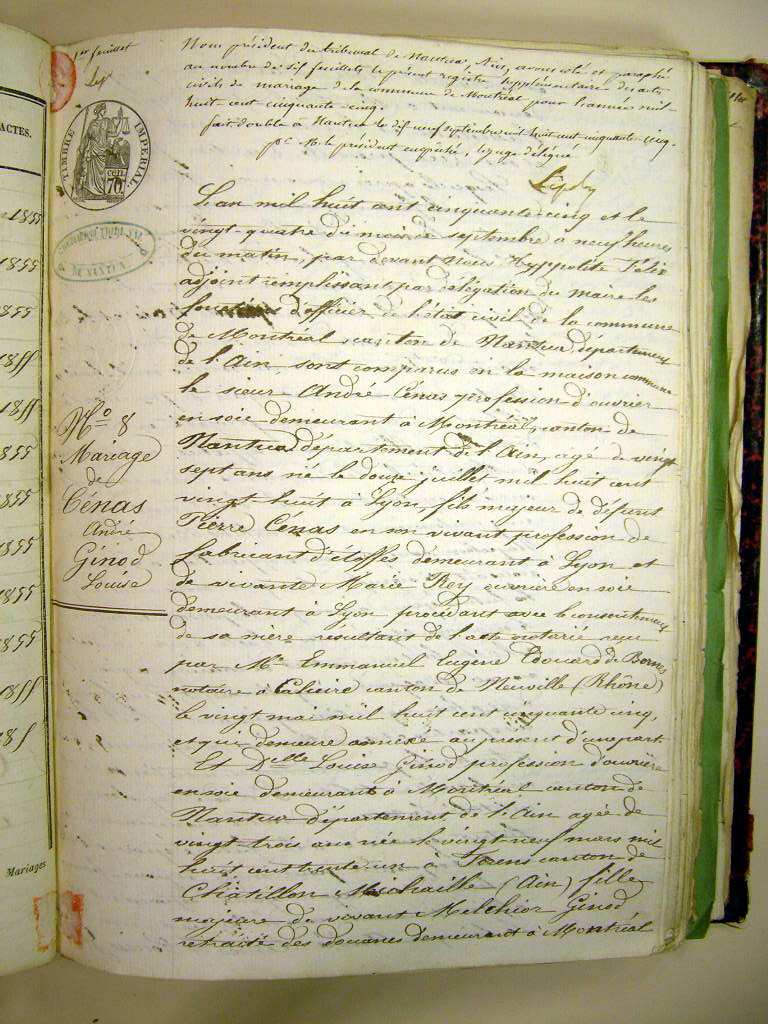 ACTES.
1855
1855
1855
1855
1855
1855
1855
1855
Mariages
1er feuillet
TIMBRE IMPÉRIAL
70
Nous président du tribunal de Nantua, Ain, avons coté et paraphé
au nombre de six feuillets le présent registre supplémentaire des actes
civils de mariage de la commune de Montréal pour l'année mil
huit cent cinquante cinq.
fait double à Nantua le dix neuf septembre mil huit cent cinquante cinq.
pr. M. le président empêché, le juge délégué
L'an mil huit cent cinquante cinq et le
vingt quatre du mois de septembre à neuf heures
du matin, par devant nous Hyppolite Félix
adjoint remplissant par délégation du maire les
fonctions d'officier de l'état civil de la commune
de Montréal, canton de Nantua, département
de l'Ain sont comparus en la maison commune
le sieur André Cénas profession d'ouvrier
en soie demeurant à Montréal, canton de
Nantua département de l'Ain, agé de vingt
sept ans né le douze juillet mil huit cent
vingt huit à Lyon, fils majeur de défunt
Pierre Cénas en son vivant profession de
fabricant d'étoffes demeurant à Lyon et
de vivante Marie Rey ouvrière en soie
demeurant à Lyon procédant avec le consentement
de sa mère resultant de l'acte notarié reçu
par Me Emmanuel Eugène Edouard de
notaire à canton de Neuville (Rhône)
le vingt mai mil huit cent cinquante cinq,
et qui demeure annexé au présent d'une part.
Et Delle Louise Ginod profession d'ouvrière
en soie demeurant à Montréal canton de
Nantua département de l'Ain agée de
vingt trois ans née le vingt neuf mars mil
huit cent trente un à canton de
Châtillon Michaille (Ain) fille
majeure de vivant Melchior Ginod
retraité des douanes demeurant à Montréal
No 8
Mariage
de
Cénas
André
Ginod
Louise